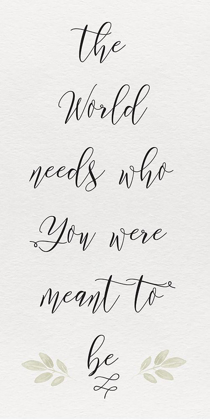 the
World
needs who
You were
meant to
be